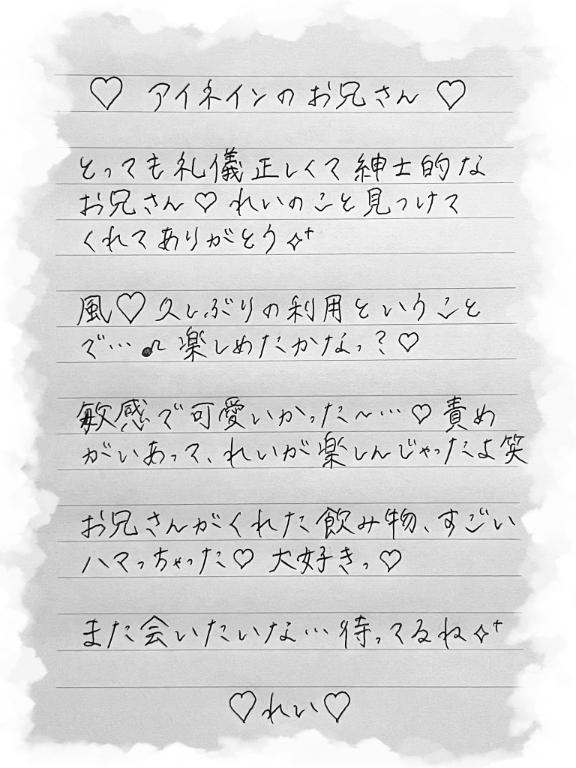 ♡ アイネインのお兄さん ♡
とっても礼儀正しくて紳士的な
お兄さん♡れいのこと見つけて
くれてありがとう✧⁺
風♡久しぶりの利用ということ
で…♫楽しめたかなっ?♡
敏感で可愛いかった〜…♡責め
がいあって、れいが楽しんじゃったよ笑
お兄さんがくれた飲み物、すごい
ハマっちゃった♡大好きっ♡
また会いたいな…待ってるね✧⁺
♡れい♡